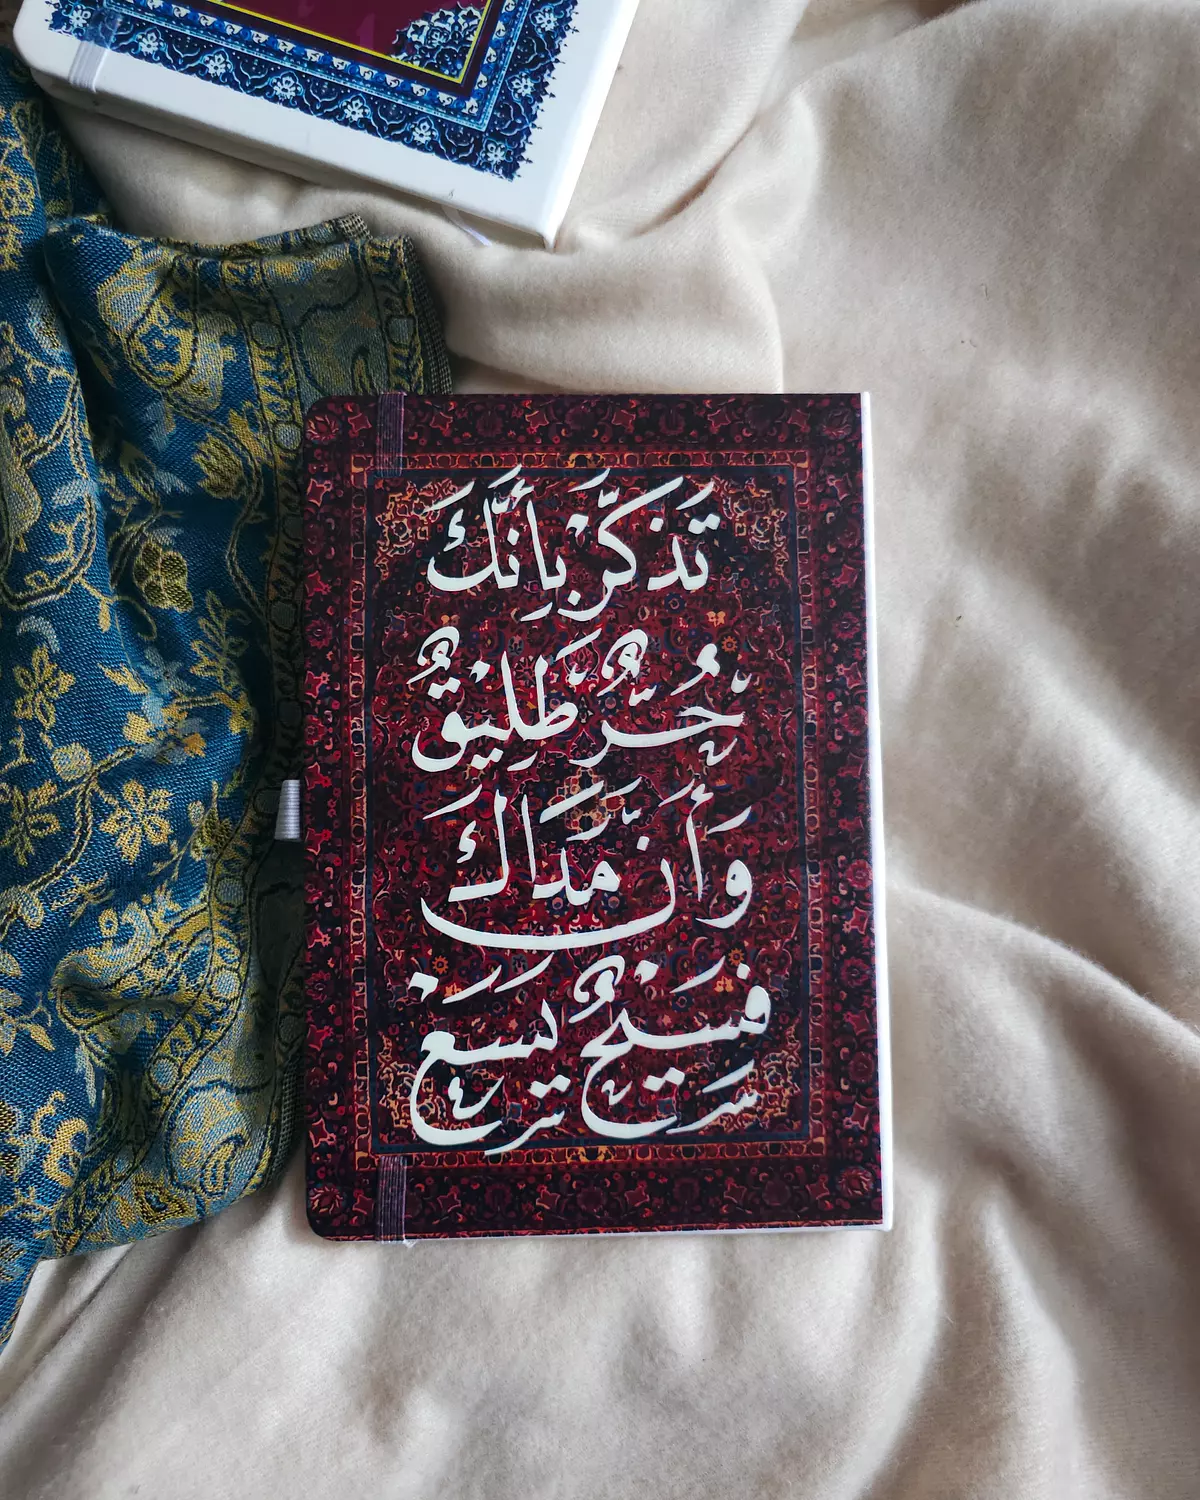 تَذَكَّرْ بِأَنَّكَ
حُرٌّ طَلِيْقٌ
وَأَنَّ مَدَاكَ
فَسِيْحٌ يَسَعْ